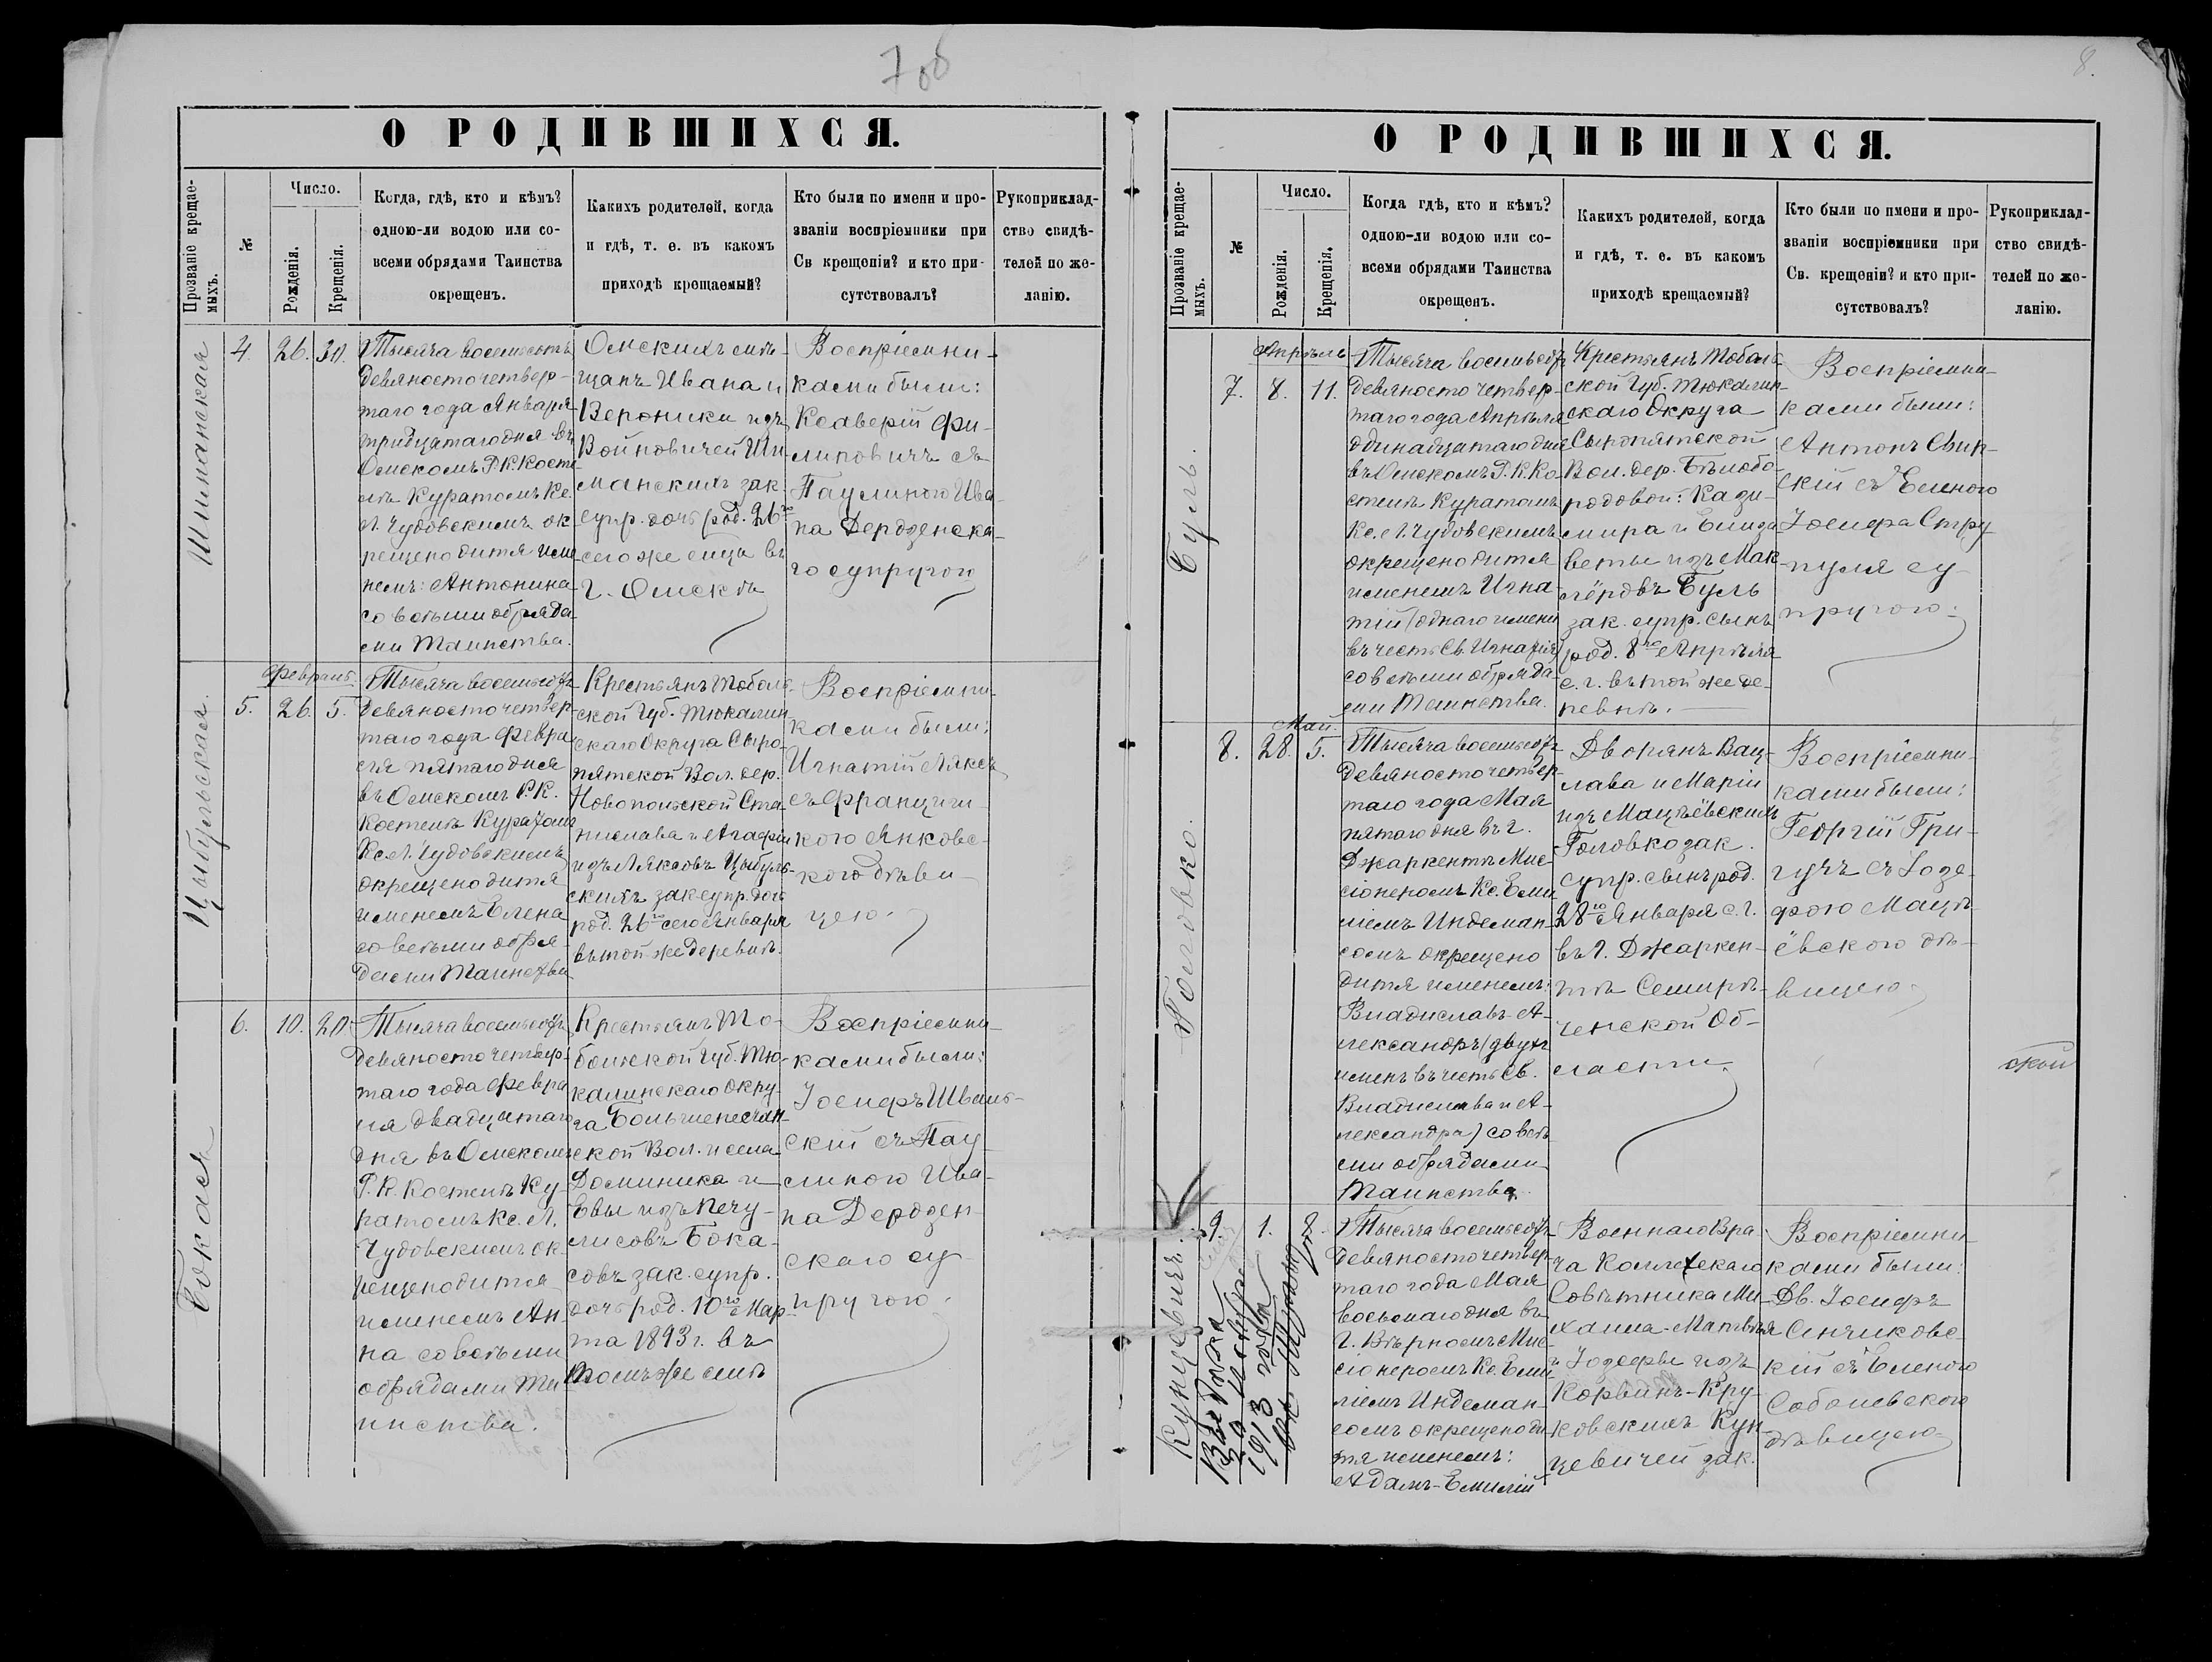 7 об
8.
О РОДИВШИХСЯ.
Прозваніе крещае-
мыхъ.
№
Число.
Рожденія.
Крещенія.
Когда, гдѣ, кто и кѣмъ?
одною-ли водою или со-
всеми обрядами Таинства
окрещенъ.
Какихъ родителей, когда
и гдѣ, т. е. въ какомъ
приходѣ крещаемый?
Кто были по имени и про-
званіи воспріемники при
Св крещеніи? и кто при-
сутствовалъ?
Рукоприклад-
ство свидѣ-
телей по же-
ланію.
Шиманская
4.
26.
30.
Тысяча восемьсотъ
девяносто четвер-
таго года Января
тридцатаго дня въ
Омскомъ Р.К. Косте-
лѣ Куратомъ Кс.
Л. Чудовскимъ ок-
рещено дитя име-
немъ: Антонина
со всѣми обряда-
ми Таинства.
Омскихъ мѣ-
щанъ Ивана и
Вероники изъ
Войновичей Ши-
манскихъ зак.
супр. дочь род. 26го
сего же м-ца въ
г. Омскѣ
Воспріемни-
ками были:
Ксаверій Фи-
липовичъ съ
Паулиною Ива-
на Дердзенска-
го супругою
Цыбульская
Февраль.
5.
26.
5.
Тысяча восемьсотъ
девяносто четвер-
таго года Февра-
ля пятаго дня
въ Омскомъ Р.К.
Костелѣ Куратомъ
Кс. Л. Чудовскимъ
окрещено дитя
именемъ Елена
со всѣми обря-
дами Таинства
Крестьянъ Тоболь-
ской Губ. Тюкалин-
скаго Округа Сыро-
пятской Вол. дер.
Новопольской Ста-
нислава и Агафіи
изъ Ляксовъ Цыбуль-
скихъ зак. супр. дочь
род. 26го сего Января
въ той же деревнѣ.
Воспріемни-
ками были:
Игнатій Ляксъ
съ Франциш-
кою Янковс-
кою дѣви-
цею.
Бокасъ
6.
10.
20.
Тысяча восемьсотъ
девяносто четвер-
таго года Февра-
ля двадцатаго
дня въ Омскомъ
Р.К. Костелѣ Ку-
ратомъ Кс. Л.
Чудовскимъ ок-
рещено дитя
именемъ Ан-
на со всѣми
обрядами Таи-
нства.
Крестьянъ То-
больской Губ. Тю-
калинскаго Окру-
га Большепесчан-
ской Вол. и села
Доминика и
Евы изъ Печу-
лисовъ Бока-
совъ зак. супр.
дочь род. 10го Мар-
та 1893 г. въ
томъ же селѣ
Воспріемни-
ками были:
Іосифъ Шваль-
скій съ Пау-
линою Ива-
на Дердзен-
скаго су-
пругою.
О РОДИВШИХСЯ.
Прозваніе крещае-
мыхъ.
№
Число.
Рожденія.
Крещенія.
Когда гдѣ, кто и кѣмъ?
одною-ли водою или со-
всеми обрядами Таинства
окрещенъ.
Какихъ родителей, когда
и гдѣ, т. е. въ какомъ
приходѣ крещаемый?
Кто были по имени и про-
званіи воспріемники при
Св. крещеніи? и кто при-
сутствовалъ?
Рукоприклад-
ство свидѣ-
телей по же-
ланію.
Буль.
Апрѣль
7.
8.
11.
Тысяча восемьсотъ
девяносто четвер-
таго года Апрѣля
одинадцатаго дня
въ Омскомъ Р.К. Ко-
стелѣ Куратомъ
Кс. Л. Чудовскимъ
окрещено дитя
именемъ Игна-
тій (однаго имени
въ честь Св. Игнатія)
со всѣми обряда-
ми Таинства.
Крестьянъ Тоболь-
ской Губ. Тюкалин-
скаго Округа
Сыропятской
Вол. дер. Бѣлобо-
родовой: Кази-
мира и Елиза-
веты изъ Мак-
лёровъ Буль
зак. супр. сынъ
род. 8го Апрѣля
с. г. въ той же де-
ревнѣ.
Воспріемни-
ками были:
Антонъ Свир-
скій съ Еленою
Іосифа Стру-
пуля су-
пругою.
Головко.
Май.
8.
28.
5.
Тысяча восемьсотъ
девяносто четвер-
таго года Мая
пятаго дня въ г.
Джаркентѣ Мис-
сіонеромъ Кс. Еми-
ліемъ Индеман-
сомъ окрещено
дитя именемъ:
Владиславъ-А-
лександръ (двухъ
именъ въ честь Св.
Владислава и А-
лександра) со всѣ-
ми обрядами
Таинства.
Дворянъ Вац-
лава и Маріи
изъ Мацѣёвскихъ
Головко зак.
супр. сынъ род.
28го Января с. г.
въ г. Джаркен-
тѣ Семирѣ-
ченской Об-
ласти.
Воспріемни-
ками были:
Георгій Гри-
гучъ съ Іозе-
фою Мацѣ-
ёвскою дѣ-
вицею.
ской
Кунцевичъ.
9.
1.
8.
1913 года
Тысяча восемьсотъ
девяносто четвер-
таго года Мая
восьмаго дня въ
г. Вѣрномъ Мис-
сіонеромъ Кс. Еми-
ліемъ Индеман-
сомъ окрещено ди-
тя именемъ:
Адамъ-Емилій
Военнаго Вра-
ча Коллежскаго
Совѣтника Ми-
хаила-Матвѣя
и Іозефы изъ
Корвинъ-Кру-
ковскихъ Кун-
цевичей зак.
Воспріемни-
ками были:
Дв. Іосифъ
Сенчиковс-
кій съ Еленою
Соболевскою
дѣвицею